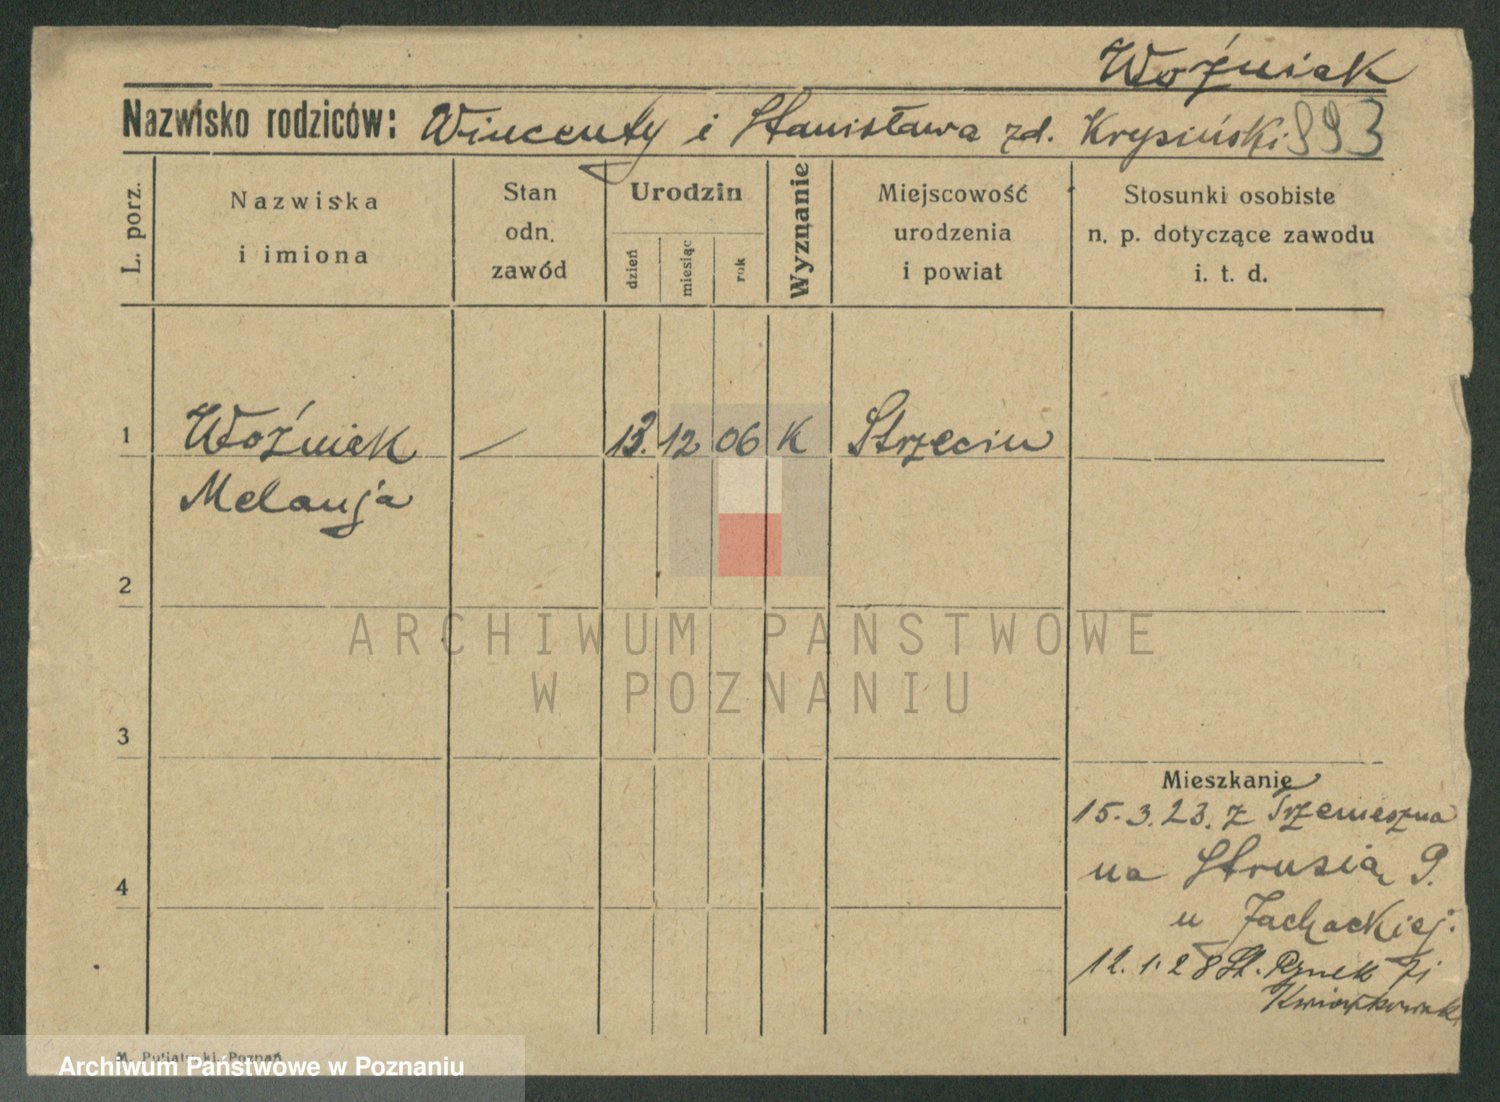 Woźniak
Nazwisko rodziców: Wincenty i Stanisława zd. Krysiński 993
L. porz.
Nazwiska
i imiona
Stan
odn.
zawód
Urodzin
dzień
miesiąc
rok
Wyznanie
Miejscowość
urodzenia
i powiat
Stosunki osobiste
n. p. dotyczące zawodu
i. t. d.
1 Woźniak — 13. 12 06 K Strzecin
Melanja
2
3
4
Mieszkanie
15.3.23. z Trzemeszna
na Strusia 9.
u
12.1.28 St. Rynek
ARCHIWUM PAŃSTWOWE
W POZNANIU
M. Putiatycki, Poznań
Archiwum Państwowe w Poznaniu